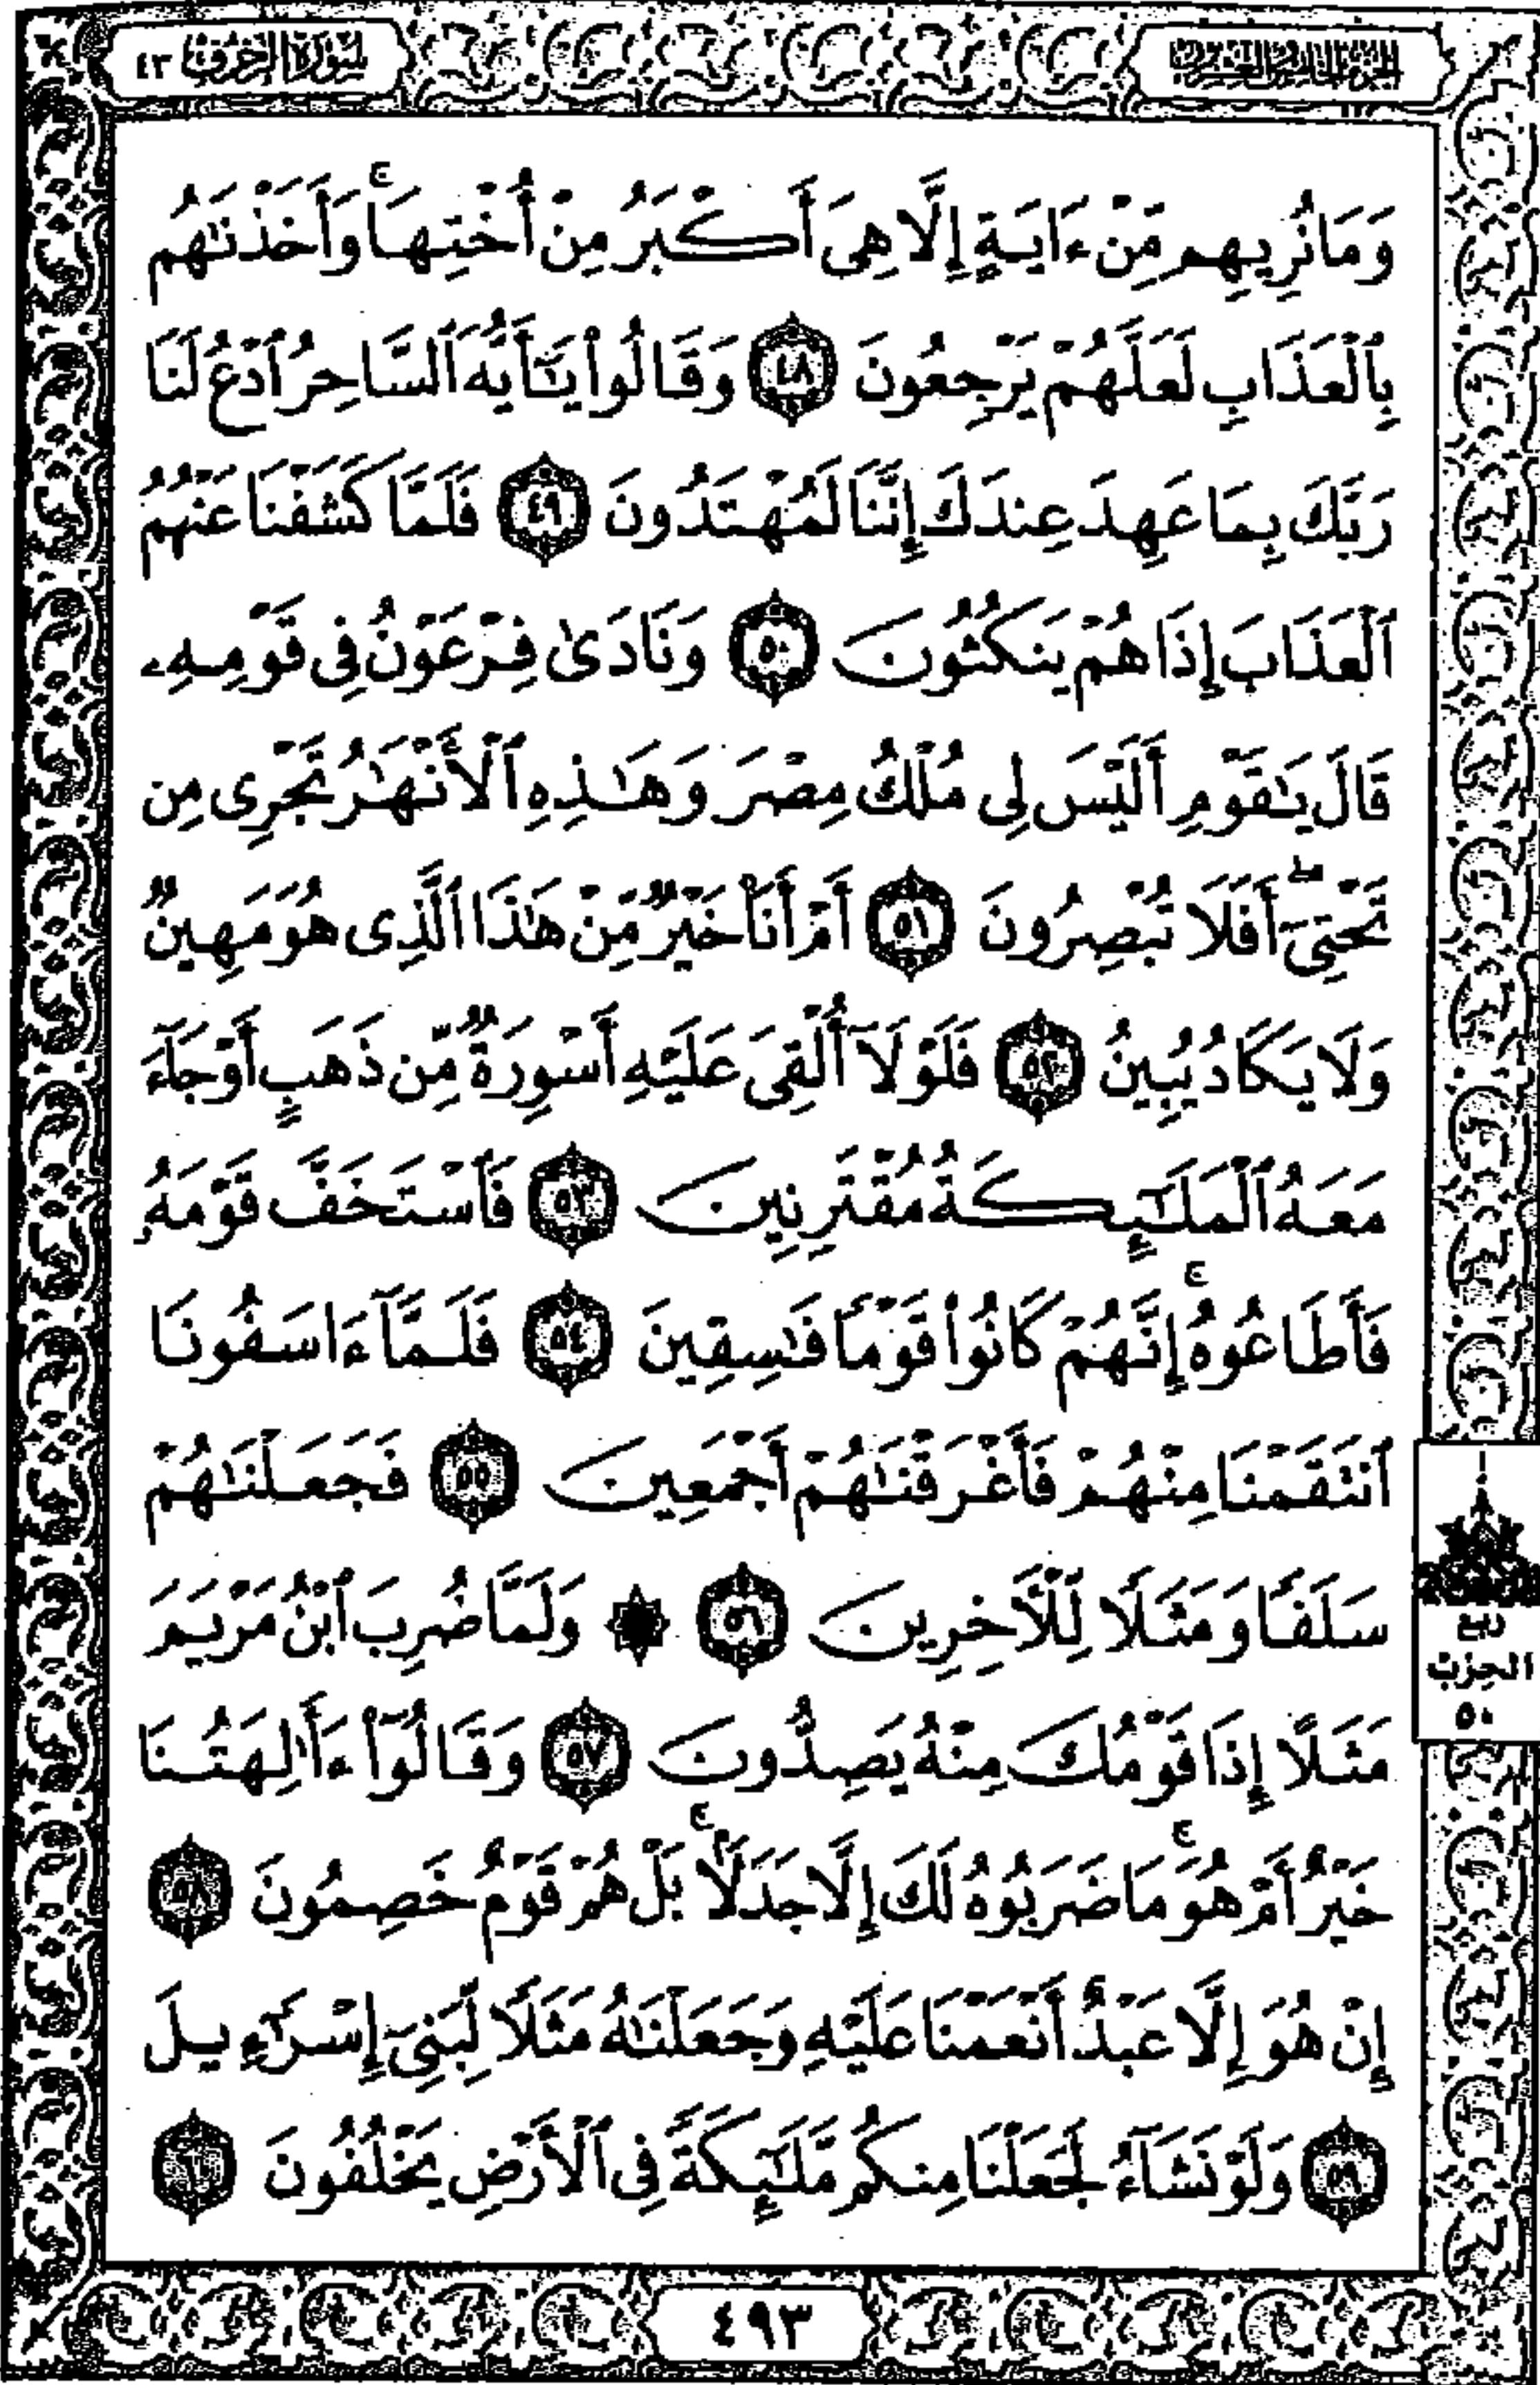 الجزء الخامس والعشرون
سُورَةُ الزُّخْرُفِ ٤٣
وَمَا نُرِيهِم مِّنْ ءَايَةٍ إِلَّا هِىَ أَكْبَرُ مِنْ أُخْتِهَا ۚ وَأَخَذْنَٰهُم
بِٱلْعَذَابِ لَعَلَّهُمْ يَرْجِعُونَ ٤٨ وَقَالُوا۟ يَٰٓأَيُّهَ ٱلسَّاحِرُ ٱدْعُ لَنَا
رَبَّكَ بِمَا عَهِدَ عِندَكَ إِنَّنَا لَمُهْتَدُونَ ٤٩ فَلَمَّا كَشَفْنَا عَنْهُمُ
ٱلْعَذَابَ إِذَا هُمْ يَنكُثُونَ ٥٠ وَنَادَىٰ فِرْعَوْنُ فِى قَوْمِهِۦ
قَالَ يَٰقَوْمِ أَلَيْسَ لِى مُلْكُ مِصْرَ وَهَٰذِهِ ٱلْأَنْهَٰرُ تَجْرِى مِن
تَحْتِىٓ ۖ أَفَلَا تُبْصِرُونَ ٥١ أَمْ أَنَا۠ خَيْرٌ مِّنْ هَٰذَا ٱلَّذِى هُوَ مَهِينٌ
وَلَا يَكَادُ يُبِينُ ٥٢ فَلَوْلَآ أُلْقِىَ عَلَيْهِ أَسْوِرَةٌ مِّن ذَهَبٍ أَوْ جَآءَ
مَعَهُ ٱلْمَلَٰٓئِكَةُ مُقْتَرِنِينَ ٥٣ فَٱسْتَخَفَّ قَوْمَهُۥ
فَأَطَاعُوهُ ۚ إِنَّهُمْ كَانُوا۟ قَوْمًا فَٰسِقِينَ ٥٤ فَلَمَّآ ءَاسَفُونَا
ٱنتَقَمْنَا مِنْهُمْ فَأَغْرَقْنَٰهُمْ أَجْمَعِينَ ٥٥ فَجَعَلْنَٰهُمْ
سَلَفًا وَمَثَلًا لِّلْءَاخِرِينَ ٥٦ ۞ وَلَمَّا ضُرِبَ ٱبْنُ مَرْيَمَ
مَثَلًا إِذَا قَوْمُكَ مِنْهُ يَصِدُّونَ ٥٧ وَقَالُوٓا۟ ءَأَٰلِهَتُنَا
خَيْرٌ أَمْ هُوَ ۚ مَا ضَرَبُوهُ لَكَ إِلَّا جَدَلًۢا ۚ بَلْ هُمْ قَوْمٌ خَصِمُونَ ٥٨
إِنْ هُوَ إِلَّا عَبْدٌ أَنْعَمْنَا عَلَيْهِ وَجَعَلْنَٰهُ مَثَلًا لِّبَنِىٓ إِسْرَٰٓءِيلَ
٥٩ وَلَوْ نَشَآءُ لَجَعَلْنَا مِنكُم مَّلَٰٓئِكَةً فِى ٱلْأَرْضِ يَخْلُفُونَ ٦٠
ربع
الحزب
٥٠
٤٩٣